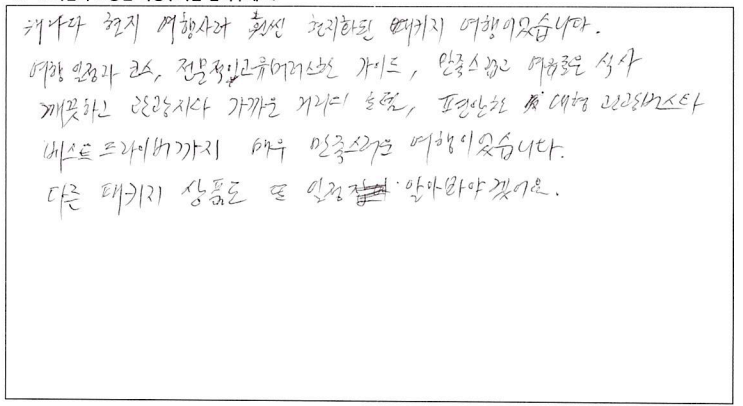 캐나다 현지 여행사라 훨씬 현지화된 패키지 여행이었습니다.
여행 일정과 코스, 전문적이고 유머러스한 가이드, 만족스럽고 여유로운 식사
깨끗하고 관광지와 가까운 거리의 호텔, 편안한 대형 관광버스와
베스트 드라이버까지 매우 만족스러운 여행이었습니다.
다른 패키지 상품도 또 일정 알아봐야겠어요.